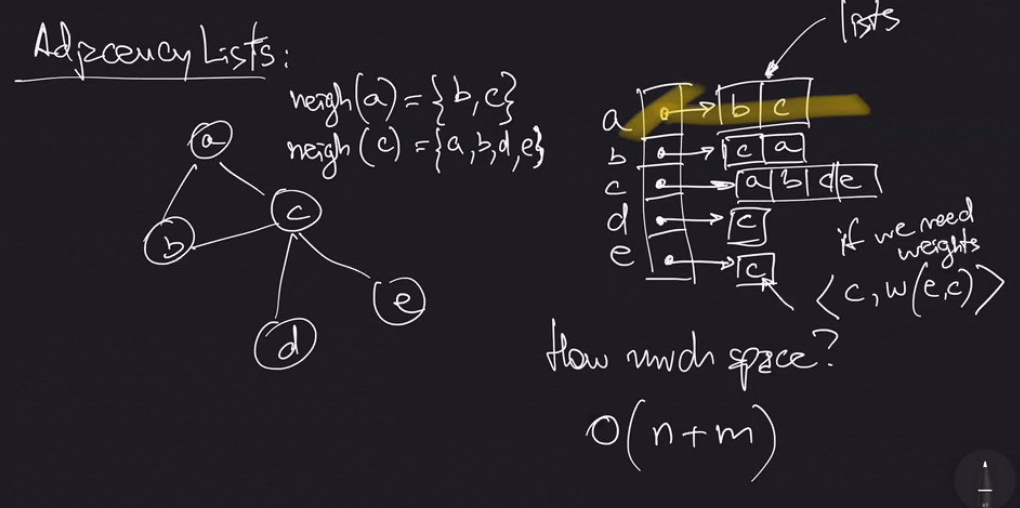 Adjacency Lists:
neigh(a) = {b, c}
neigh(c) = {a, b, d, e}
a
b
c
d
e
lists
a b c
b c a
c a b d e
d c
e c
if we need
weights
⟨c, w(e,c)⟩
How much space?
O(n+m)